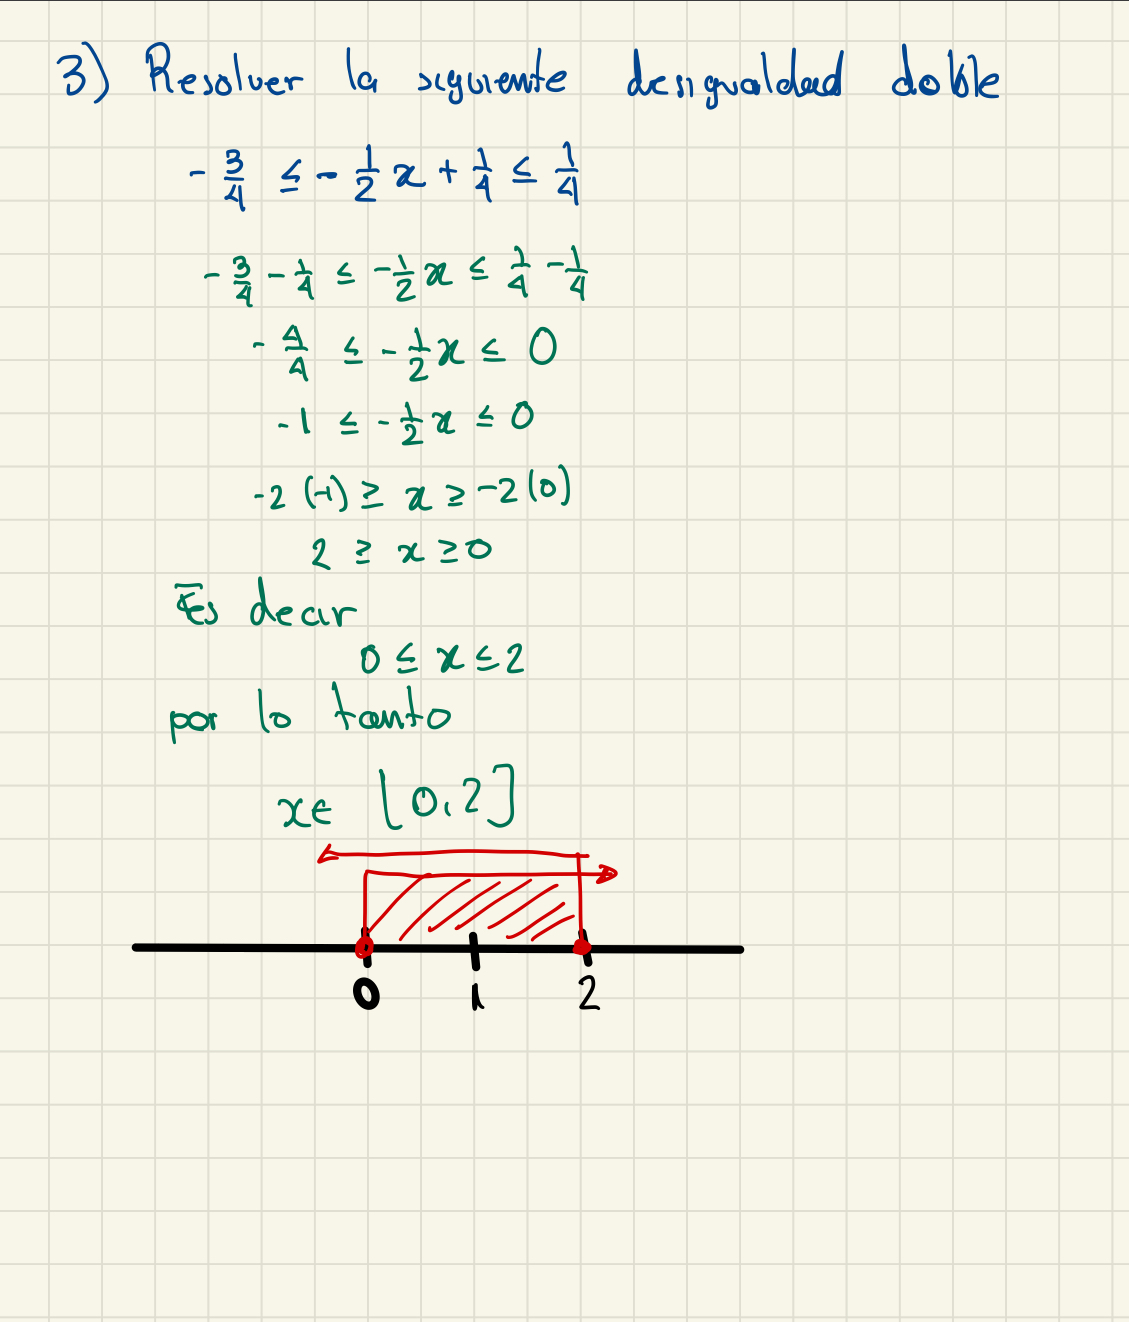 3) Resolver la siguiente desigualdad doble
-3/4 ≤ -1/2 x + 1/4 ≤ 1/4
-3/4 - 1/4 ≤ -1/2 x ≤ 1/4 - 1/4
-4/4 ≤ -1/2 x ≤ 0
-1 ≤ -1/2 x ≤ 0
-2(-1) ≥ x ≥ -2(0)
2 ≥ x ≥ 0
Es decir
0 ≤ x ≤ 2
por lo tanto
x ∈ [0,2]
0 1 2